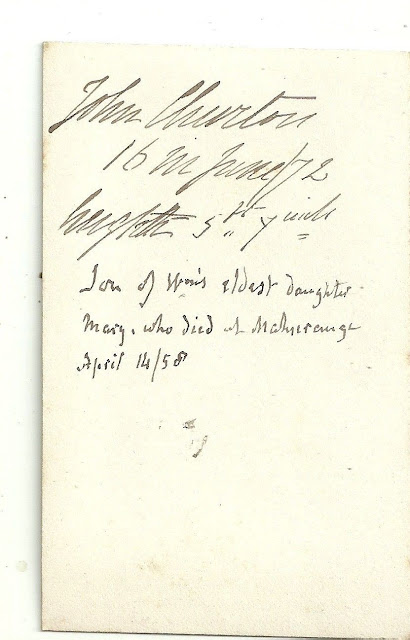 John Churton
16 in June/72
heighth 5 ft 7 inch
Son of Wm's eldest daughter
Mary, who died at Mahurangi
April 14/58